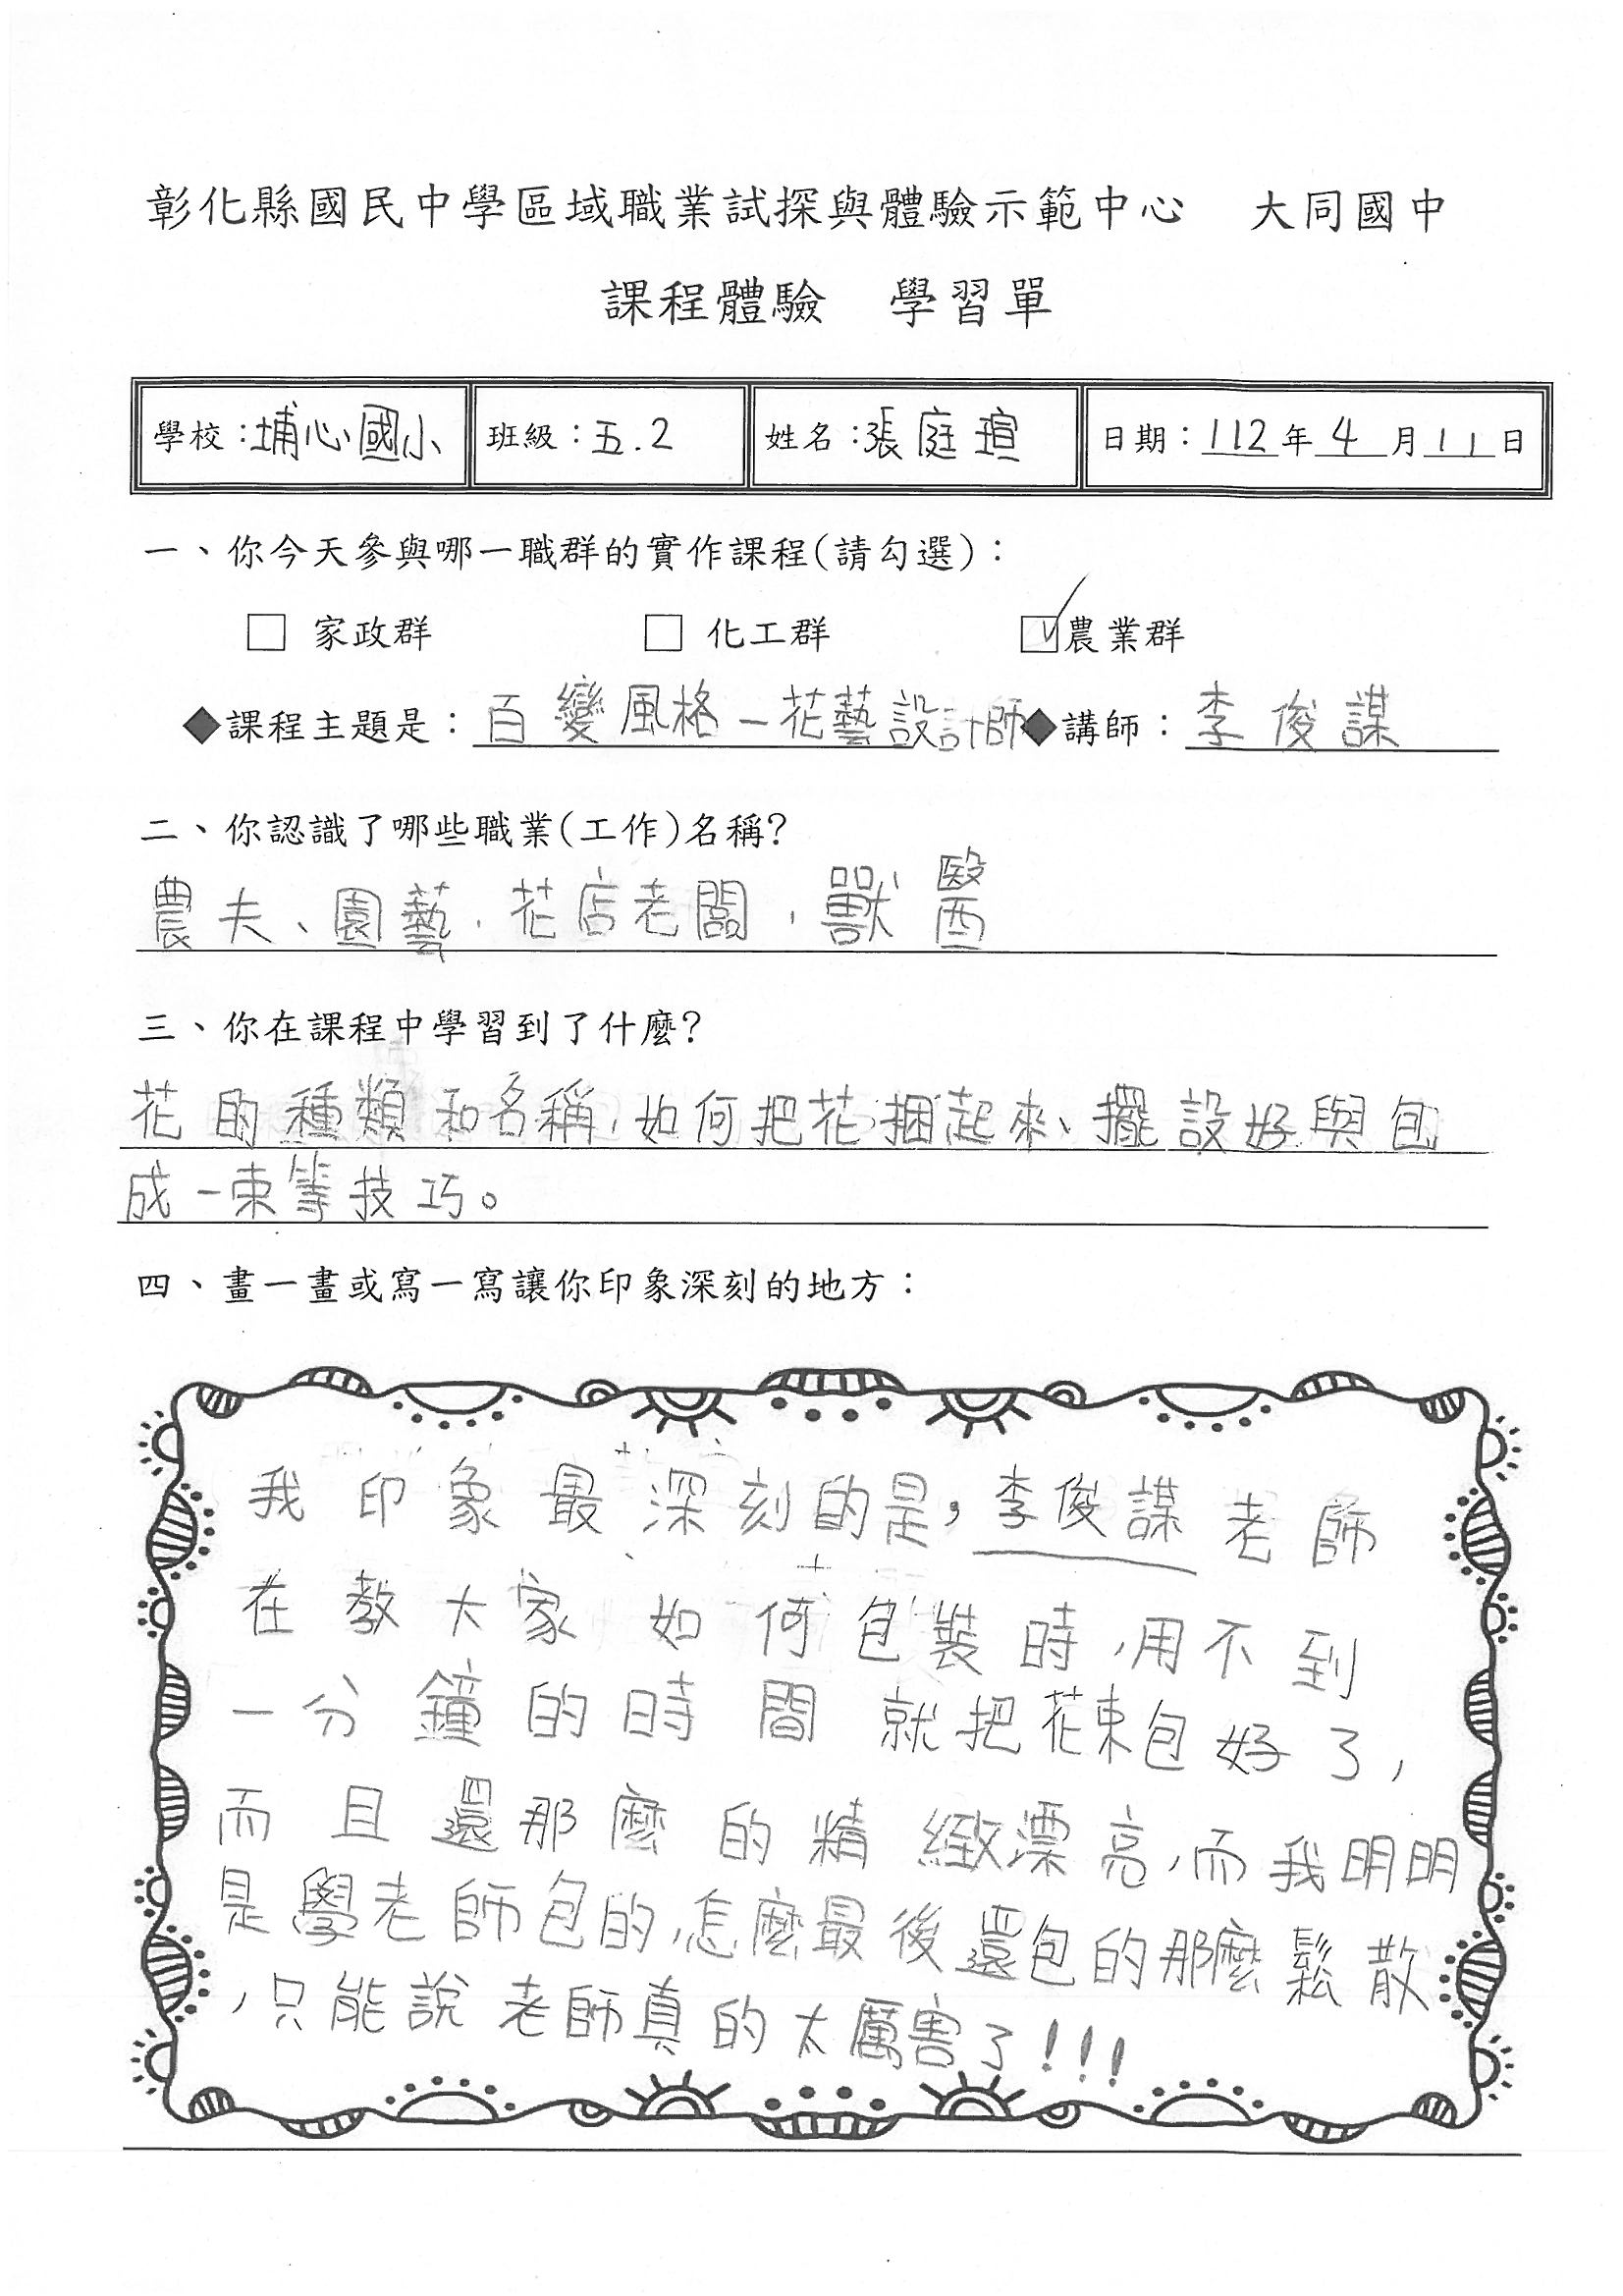 彰化縣國民中學區域職業試探與體驗示範中心　大同國中
課程體驗　學習單
學校：埔心國小　班級：五.2　姓名：張庭瑄　日期：112年4月11日
一、你今天參與哪一職群的實作課程(請勾選)：
□ 家政群　□ 化工群　☑農業群
◆課程主題是：百變風格－花藝設計師◆講師：李俊謀
二、你認識了哪些職業(工作)名稱?
農夫、園藝、花店老闆，獸醫
三、你在課程中學習到了什麼?
花的種類和名稱，如何把花捆起來、擺設好與包
成一束等技巧。
四、畫一畫或寫一寫讓你印象深刻的地方：
我印象最深刻的是，李俊謀老師
在教大家如何包裝時，用不到
一分鐘的時間就把花束包好了，
而且還那麼的精緻漂亮，而我明明
是學老師包的，怎麼最後還包的那麼鬆散
，只能說老師真的太厲害了!!!